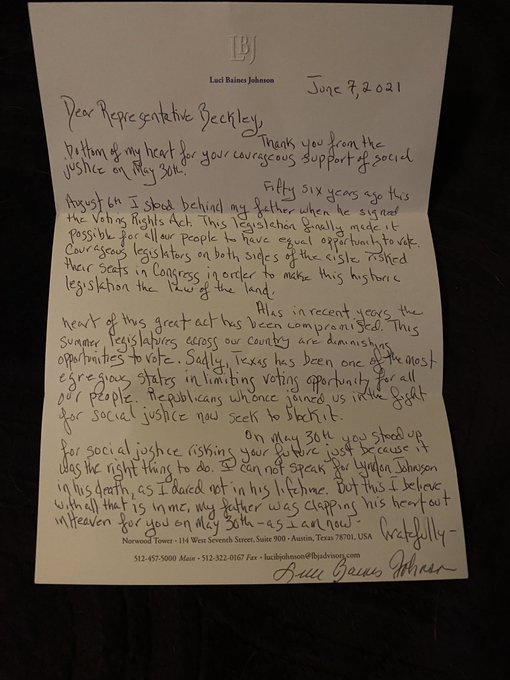 LBJ
Luci Baines Johnson
June 7, 2021
Dear Representative Beckley,
Thank you from the
bottom of my heart for your courageous support of social
justice on May 30th.
Fifty six years ago this
August 6th I stood behind my father when he signed
the Voting Rights Act. This legislation finally made it
possible for all our people to have equal opportunity to vote.
Courageous legislators on both sides of the aisle risked
their seats in Congress in order to make this historic
legislation the law of the land.
Alas in recent years the
heart of this great act has been compromised. This
summer legislatures across our country are diminishing
opportunities to vote. Sadly, Texas has been one of the most
egregious states in limiting voting opportunity for all
our people. Republicans who once joined us in the fight
for social justice now seek to block it.
On May 30th you stood up
for social justice risking your future just because it
was the right thing to do. I can not speak for Lyndon Johnson
in his death, as I dared not in his lifetime. But this I believe
with all that is in me, my father was clapping his heart out
in Heaven for you on May 30th - as I am now -
Gratefully -
Norwood Tower · 114 West Seventh Street, Suite 900 · Austin, Texas 78701, USA
512-457-5000 Main · 512-322-0167 Fax · lucibjohnson@lbjadvisors.com
Luci Baines Johnson